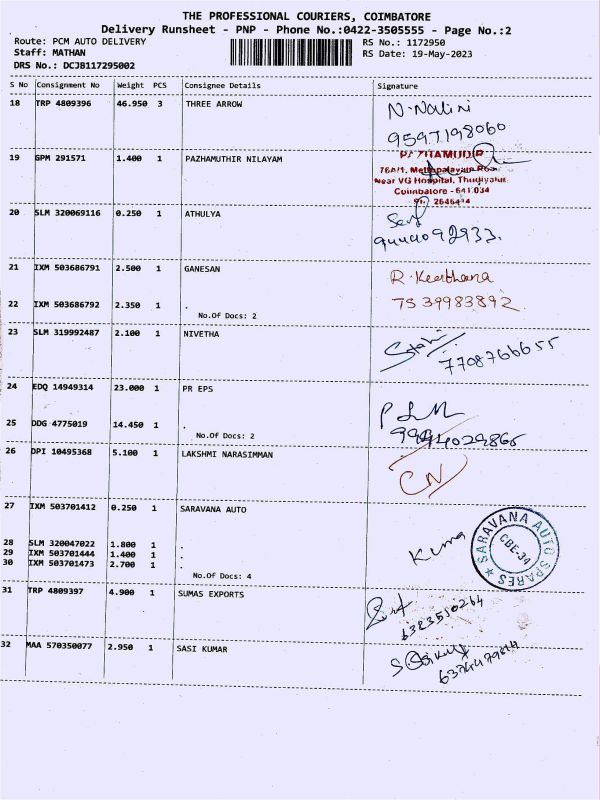 THE PROFESSIONAL COURIERS, COIMBATORE
Delivery Runsheet - PNP - Phone No.:0422-3505555 - Page No.:2
Route: PCM AUTO DELIVERY RS No.: 1172950
Staff: MATHAN RS Date: 19-May-2023
DRS No.: DCJB117295002
S No Consignment No Weight PCS Consignee Details Signature
18 TRP 4809396 46.950 3 THREE ARROW N. Nalini
9597198060
19 GPM 291571 1.400 1 PAZHAMUTHIR NILAYAM
768/1, Mettupalayam Road
Near VG Hospital, Thudiyalur
Coimbatore - 641 034
Ph: 2646414
20 SLM 320069116 0.250 1 ATHULYA
21 IXM 503686791 2.500 1 GANESAN R. Keerthana
7539983892
22 IXM 503686792 2.350 1 .
No.Of Docs: 2
23 SLM 319992487 2.100 1 NIVETHA
7708766655
24 EDQ 14949314 23.000 1 PR EPS
25 DDG 4775019 14.450 1 .
No.Of Docs: 2
26 DPI 10495368 5.100 1 LAKSHMI NARASIMMAN
CN
27 IXM 503701412 0.250 1 SARAVANA AUTO
SARAVANA AUTO SPARES ★
CBE-34
28 SLM 320047022 1.800 1 .
29 IXM 503701444 1.400 1 .
30 IXM 503701473 2.700 1 .
No.Of Docs: 4
31 TRP 4809397 4.900 1 SUMAS EXPORTS
6323510264
32 MAA 570350077 2.950 1 SASI KUMAR